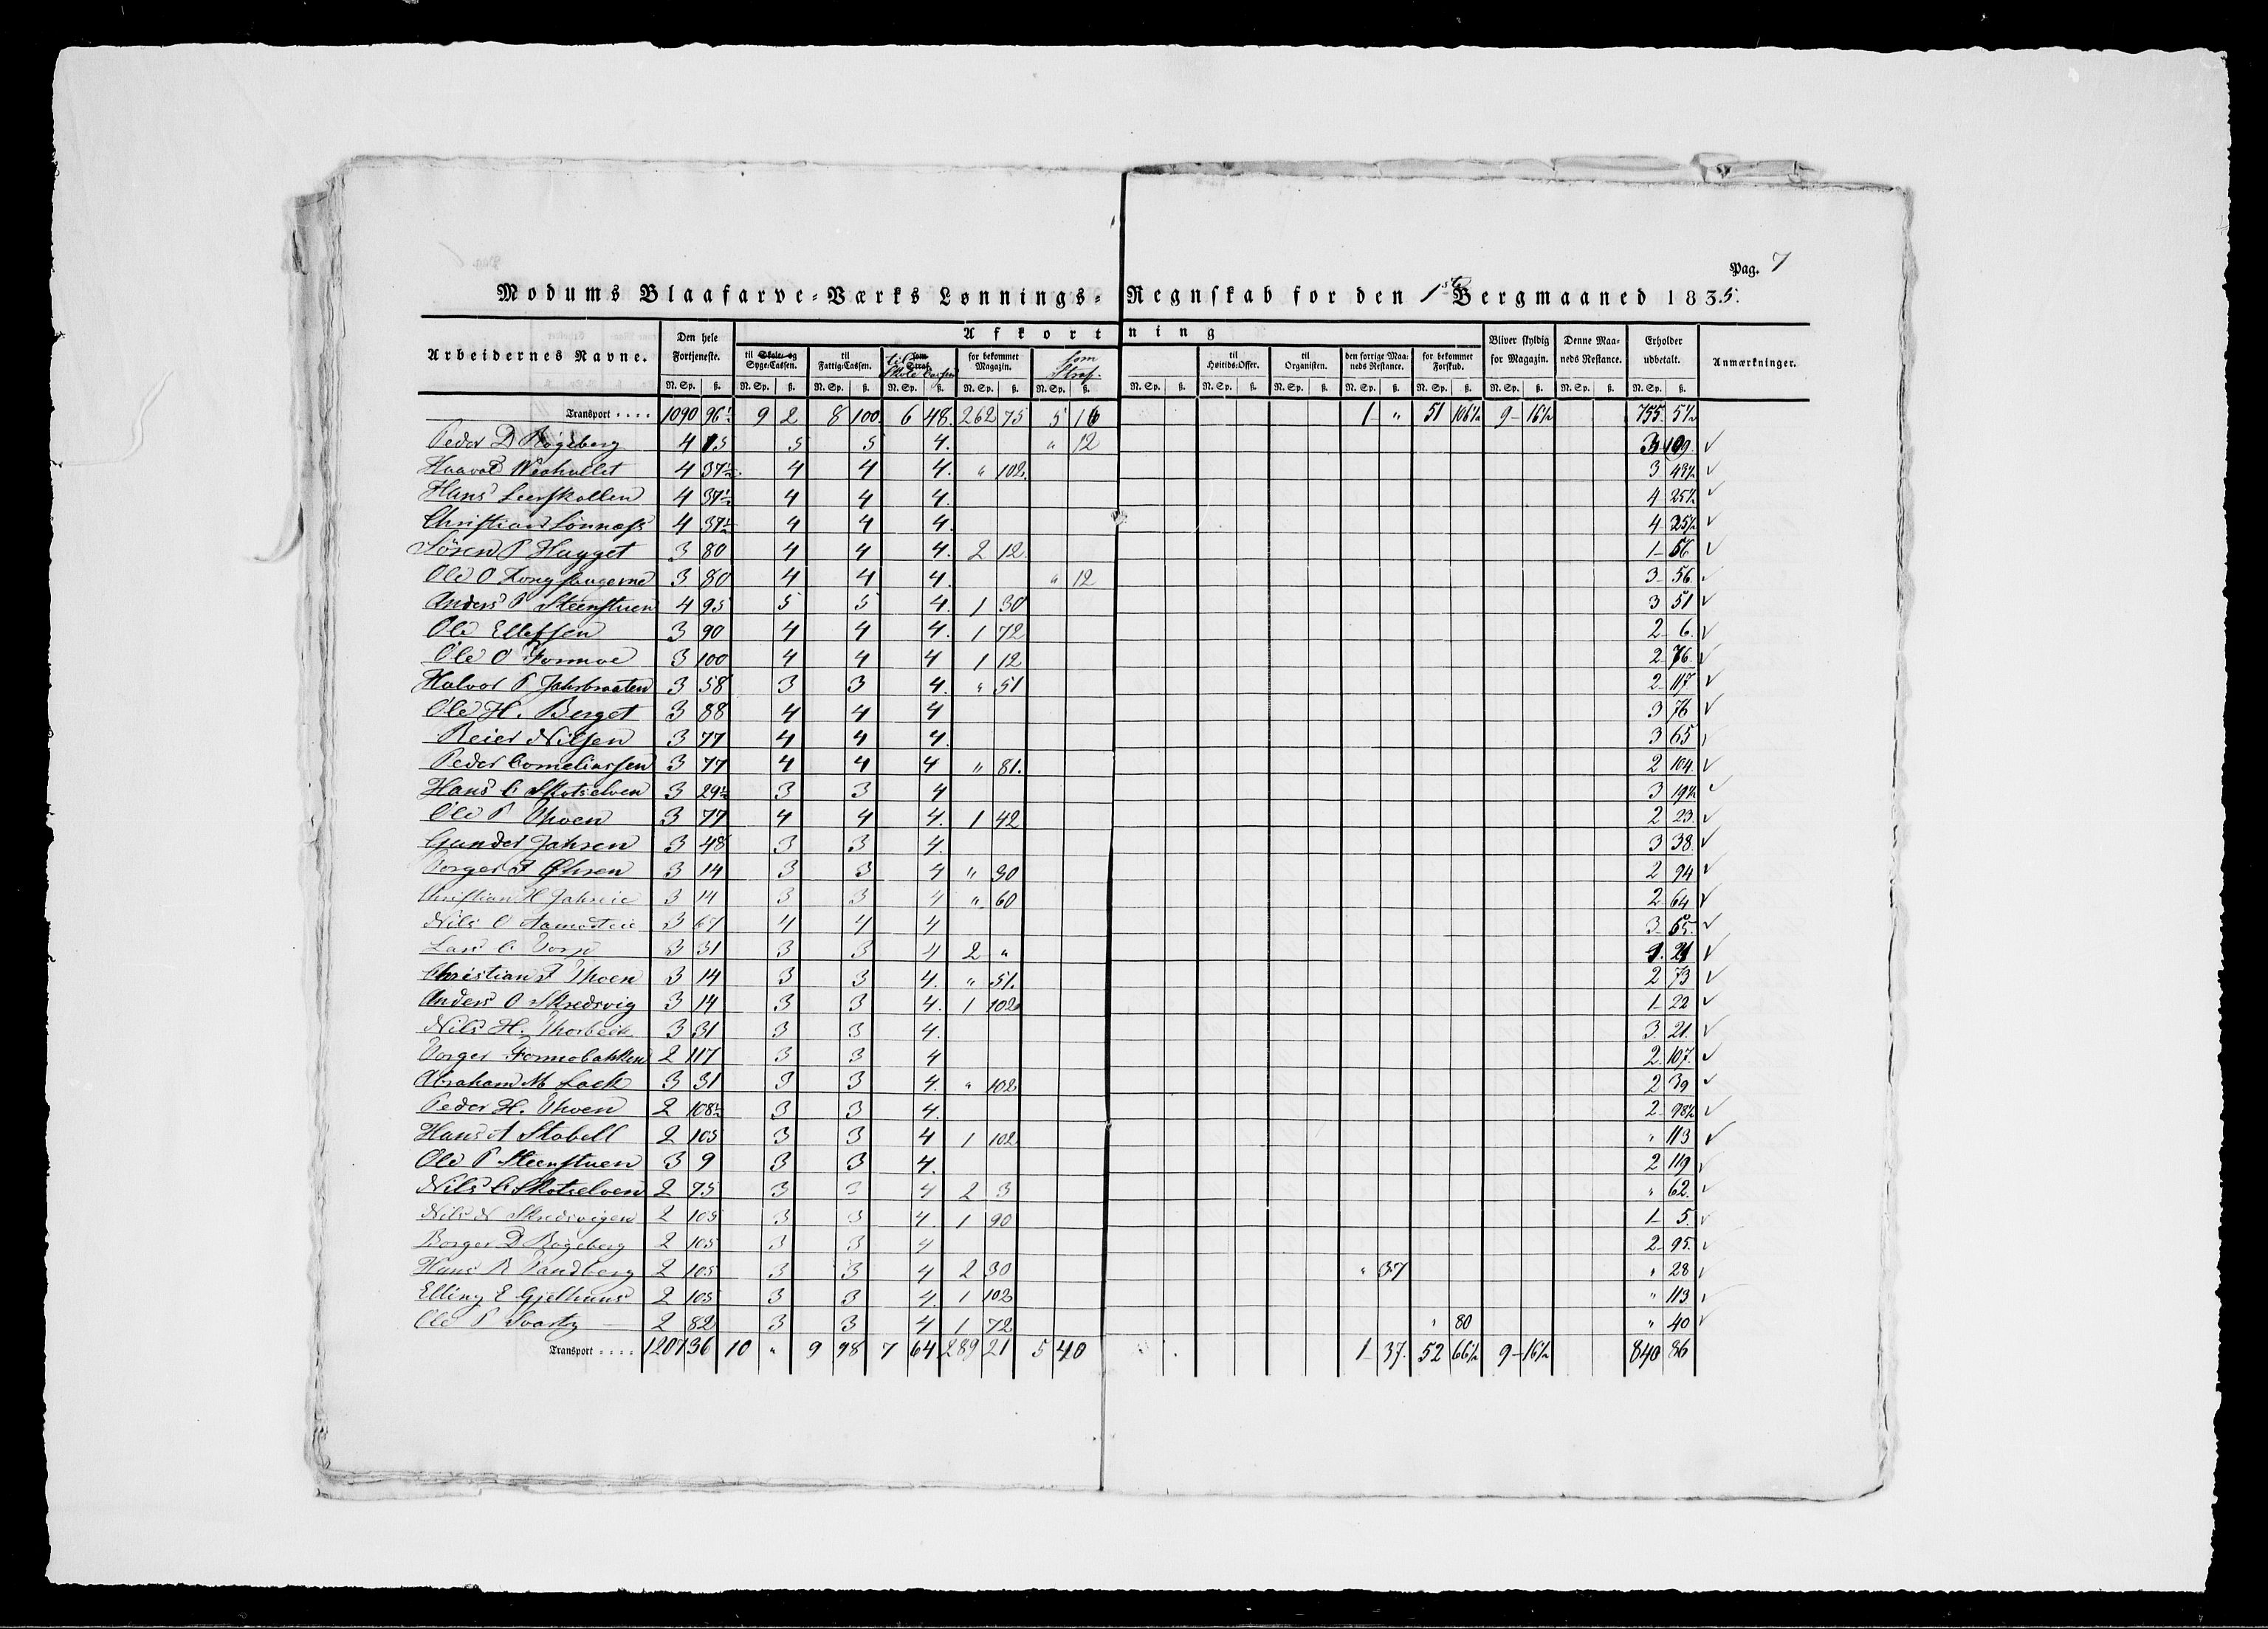 Pag. 7
Modums Blaafarve-Værks Lønnings-Regnskab for den 1ste Bergmaaned 1835.
Arbeidernes Navne. Den hele Fortjeneste. Afkortning Bliver skyldig for Magazin. Denne Maaneds Restance. Erholder udbetalt. Anmærkninger.
til Skole- og Syge-Cassen. til Fattig-Cassen. til Skole Cassen som Straf. for bekommet Magazin. som Straf. til Høitids-Offer. til Organisten. den forrige Maaneds Restance. for bekommet Forskud.
N. Sp. ß. N. Sp. ß. N. Sp. ß. N. Sp. ß. N. Sp. ß. N. Sp. ß. N. Sp. ß. N. Sp. ß. N. Sp. ß. N. Sp. ß. N. Sp. ß. N. Sp. ß. N. Sp. ß. N. Sp. ß.
Transport .... 1090 96½ 9 2 8 100 6 48 262 75 5 16 1 " 51 106½ 9 16½ 755 5½
Peder D Bøgeberg 4 15 5 5 4. " 12 3 109 ✓
Haavold 4 37½ 4 4 4. " 102 3 43½ ✓
Hans Leerskallen 4 37½ 4 4 4. 4 25½ ✓
Christian Lønnæss 4 37½ 4 4 4. 4 25½ ✓
Sören P Hagget 3 80 4 4 4. 2 12 1 56 ✓
Ole O 3 80 4 4 4. " 12 3 56 ✓
Anders P Steenstuen 4 95 5 5 4. 1 30 3 51 ✓
Ole Ellefsen 3 90 4 4 4. 1 72 2 6 ✓
Ole O Formoe 3 100 4 4 4 1 12 2 76 ✓
Halvor P. Jahrbraaten 3 58 3 3 4. " 51 2 117 ✓
Ole H. Berget 3 88 4 4 4 3 76 ✓
Reier Nilsen 3 77 4 4 4. 3 65 ✓
Peder Corneliussen 3 77 4 4 4 " 81. 2 104 ✓
Hans C Skotselven 3 29½ 3 3 4 3 19½ ✓
Ole P Thoen 3 77 4 4 4. 1 42 2 23 ✓
Gunder Jahren 3 48 3 3 4. 3 38 ✓
Torger J Øhren 3 14 3 3 4 " 30 2 94 ✓
Christian H 3 14 3 3 4 " 60 2 64 ✓
Nils O 3 67 4 4 4 3 55 ✓
Lars C Torp 3 31 3 3 4 2 " 1 21 ✓
Christian J Thoen 3 14 3 3 4. " 51. 2 73 ✓
Anders O Skredsvig 3 14 3 3 4. 1 102 1 22 ✓
Nils H. Thorbek 3 31 3 3 4. 3 21 ✓
Torger Formobakken 2 117 3 3 4 2 107 ✓
Abraham M Lock 3 31 3 3 4. " 102 2 39 ✓
Peder H. Thoen 2 108½ 3 3 4. 2 98½ ✓
Hans A Stabell 2 105 3 3 4 1 102 " 113 ✓
Ole P Steenstuen 3 9 3 3 4. 2 119 ✓
Nils C Skotselven 2 75 3 3 4 2 3 " 62 ✓
Nils N Skredsvigen 2 105 3 3 4. 1 90 1 5 ✓
Borger D Bøgeberg 2 105 3 3 4 2 95 ✓
Hans R Sandberg 2 105 3 3 4 2 30 " 37 " 28 ✓
Elling E Gjelhuus 2 105 3 3 4. 1 102 " 113 ✓
Ole P Svarty 2 82 3 3 4 1 72 " 80 " 40 ✓
Transport .... 1207 36 10 " 9 98 7 64 289 21 5 40 1 37 52 66½ 9 16½ 840 86